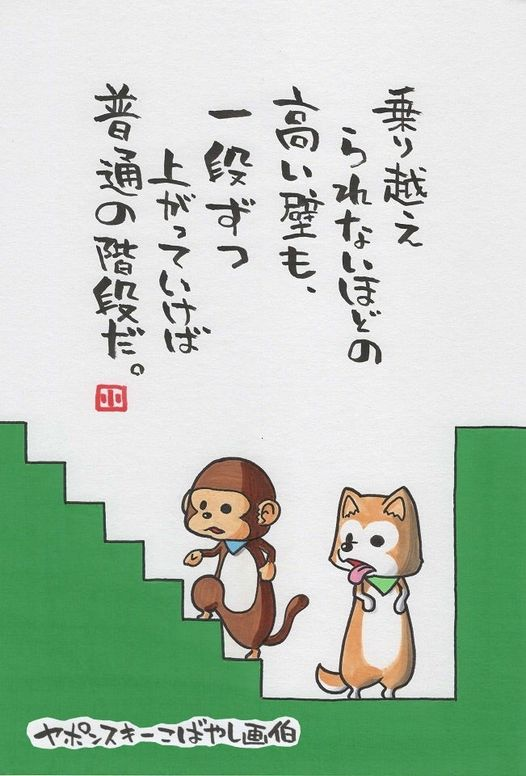 乗り越え
られないほどの
高い壁も、
一段ずつ
上がっていけば
普通の階段だ。
小
ヤポンスキーこばやし画伯